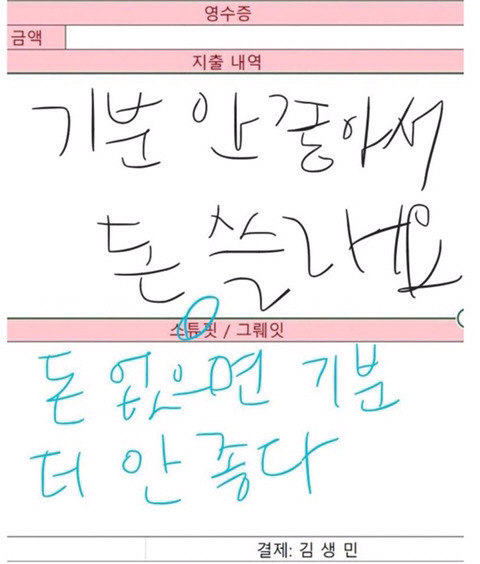 영수증
금액
지출 내역
기분 안 좋아서
돈 쓸라예요
스튜핏 / 그뤠잇
돈 없으면 기분
더 안 좋다
결제: 김 생 민